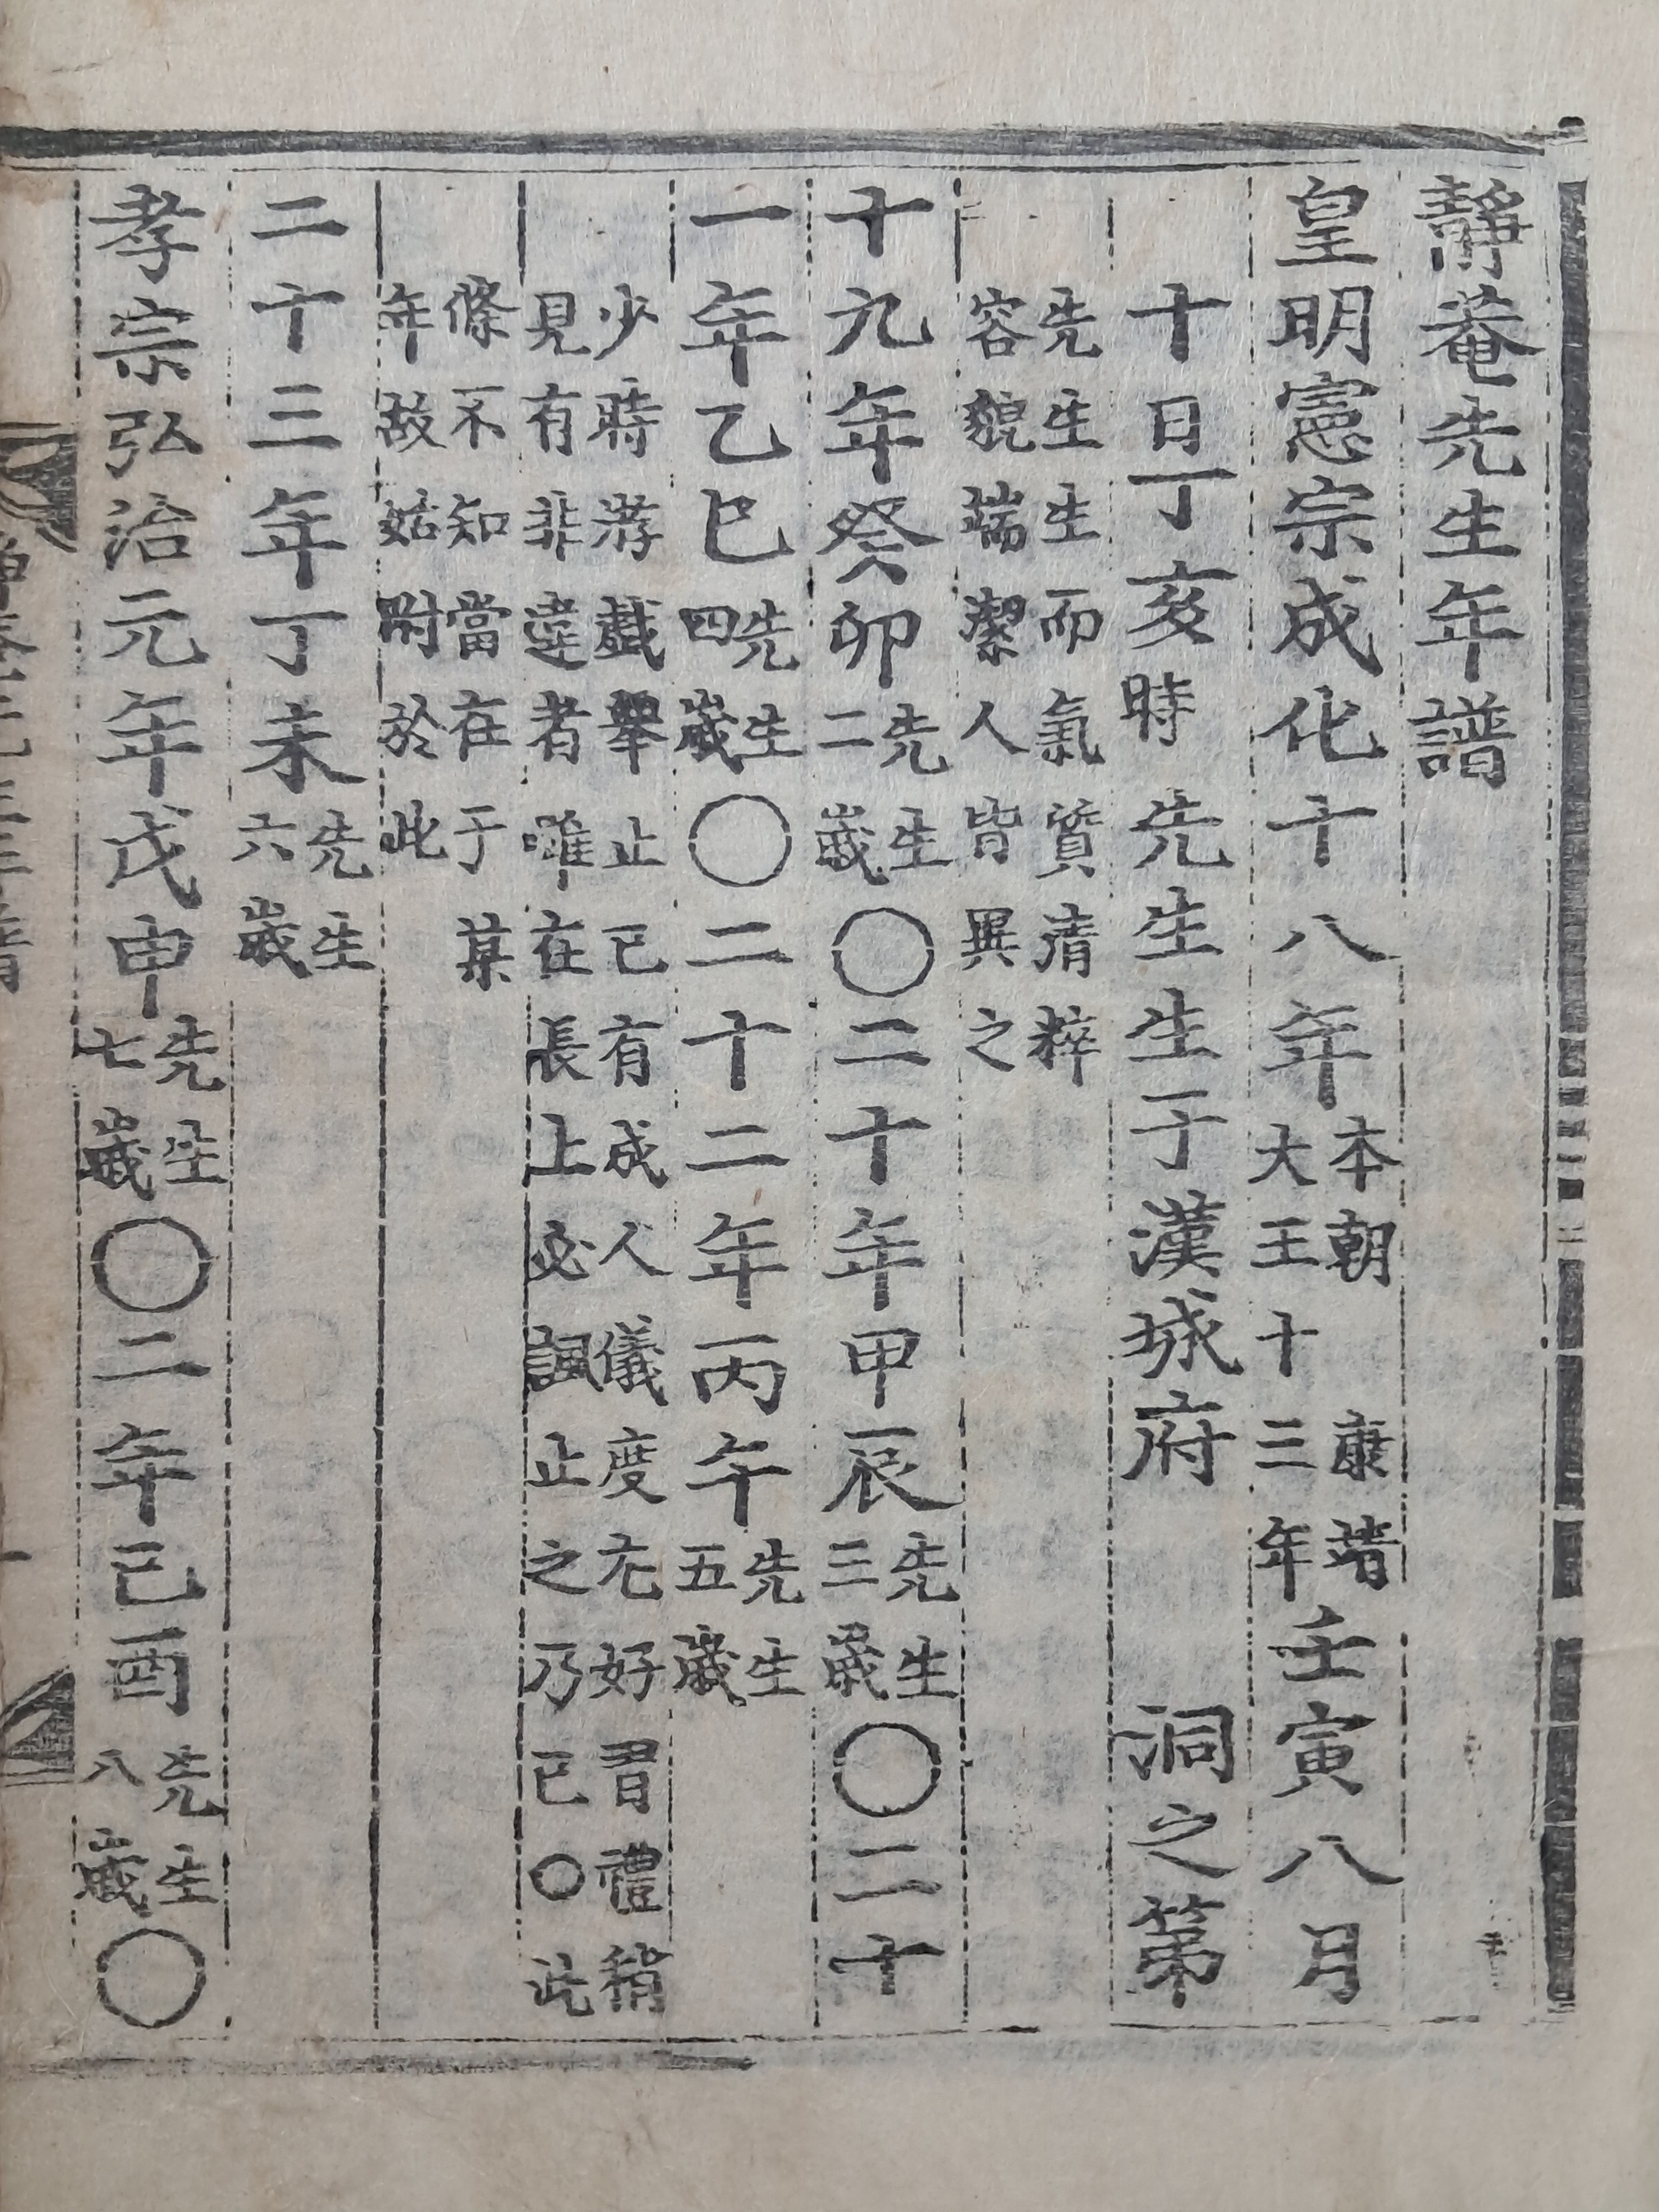 靜菴先生年譜
皇明憲宗成化十八年本朝 康靖大王十三年壬寅八月
十日丁亥時先生生于漢城府 洞之第
先生生而氣質淸粹
容貌端潔人皆異之
十九年癸卯先生二歲○二十年甲辰先生三歲○二十
一年乙巳先生四歲○二十二年丙午先生五歲
少時游戱擧止已有成人儀度尤好習禮稍
見有非違者雖在長上必諷止之乃已○此
條不知當在于某
年故姑附於此
二十三年丁未先生六歲
孝宗弘治元年戊申先生七歲○二年己酉先生八歲○